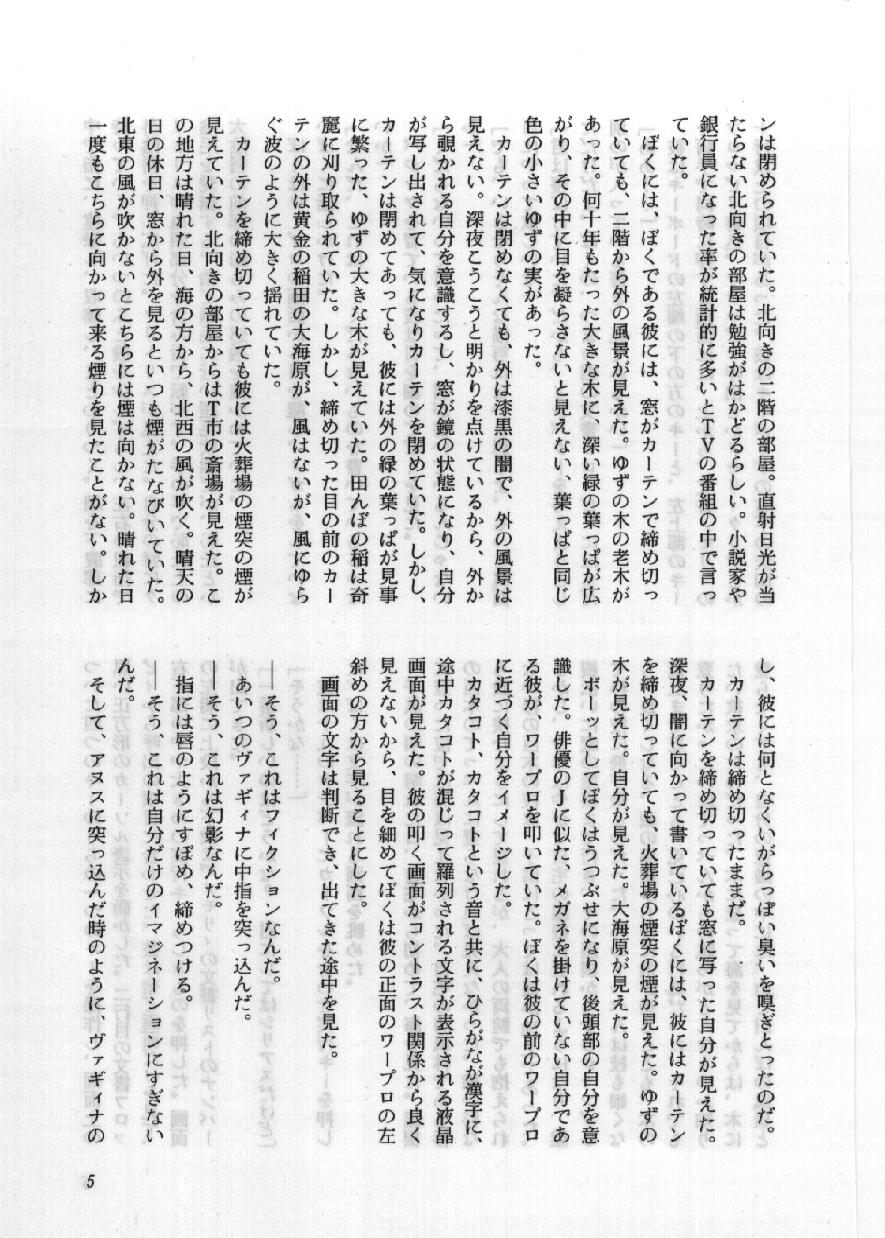 ンは閉められていた。北向きの二階の部屋。直射日光が当
たらない北向きの部屋は勉強がはかどるらしい。小説家や
銀行員になった率が統計的に多いとTVの番組の中で言っ
ていた。
ぼくには、ぼくである彼には、窓がカーテンで締め切っ
ていても、二階から外の風景が見えた。ゆずの木の老木が
あった。何十年もたった大きな木に、深い緑の葉っぱが広
がり、その中に目を凝らさないと見えない、葉っぱと同じ
色の小さいゆずの実があった。
カーテンは閉めなくても、外は漆黒の闇で、外の風景は
見えない。深夜こうこうと明かりを点けているから、外か
ら覗かれる自分を意識するし、窓が鏡の状態になり、自分
が写し出されて、気になりカーテンを閉めていた。しかし、
カーテンは閉めてあっても、彼には外の緑の葉っぱが見事
に繁った、ゆずの大きな木が見えていた。田んぼの稲は奇
麗に刈り取られていた。しかし、締め切った目の前のカー
テンの外は黄金の稲田の大海原が、風はないが、風にゆら
ぐ波のように大きく揺れていた。
カーテンを締め切っていても彼には火葬場の煙突の煙が
見えていた。北向きの部屋からはT市の斎場が見えた。こ
の地方は晴れた日、海の方から、北西の風が吹く。晴天の
日の休日、窓から外を見るといつも煙がたなびいていた。
北東の風が吹かないとこちらには煙は向かない。晴れた日
一度もこちらに向かって来る煙りを見たことがない。しか
し、彼には何となくいがらっぽい臭いを嗅ぎとったのだ。
カーテンは締め切ったままだ。
カーテンを締め切っていても窓に写った自分が見えた。
深夜、闇に向かって書いているぼくには、彼にはカーテン
を締め切っていても、火葬場の煙突の煙が見えた。ゆずの
木が見えた。自分が見えた。大海原が見えた。
ボーッとしてぼくはうつぶせになり、後頭部の自分を意
識した。俳優のJに似た、メガネを掛けていない自分であ
る彼が、ワープロを叩いていた。ぼくは彼の前のワープロ
に近づく自分をイメージした。
カタコト、カタコトという音と共に、ひらがなが漢字に、
途中カタコトが混じって羅列される文字が表示される液晶
画面が見えた。彼の叩く画面がコントラスト関係から良く
見えないから、目を細めてぼくは彼の正面のワープロの左
斜めの方から見ることにした。
画面の文字は判断でき出てきた途中を見た。
――そう、これはフィクションなんだ。
あいつのヴァギィナに中指を突っ込んだ。
――そう、これは幻影なんだ。
指には唇のようにすぼめ、締めつける。
――そう、これは自分だけのイマジネーションにすぎない
んだ。
そして、アヌスに突っ込んだ時のように、ヴァギィナの
5